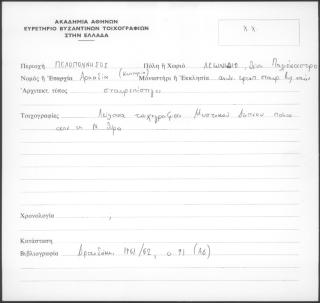 ΑΚΑΔΗΜΙΑ ΑΘΗΝΩΝ
ΕΥΡΕΤΗΡΙΟ ΒΥΖΑΝΤΙΝΩΝ ΤΟΙΧΟΓΡΑΦΙΩΝ
ΣΤΗΝ ΕΛΛΑΔΑ
Χ.Χ.
Περιοχή ΠΕΛΟΠΟΝΝΗΣΟΣ Πόλη ή Χωριό ΛΕΩΝΙΔΙΟ, Παλιόκαστρο
Νομός ή Ἐπαρχία Αρκαδία (Κυνουρία) Μοναστήρι ή Ἐκκλησία
Ἀρχιτεκτ. τύπος σταυρεπίστεγος
Τοιχογραφίες Λείψανα τοιχογραφιών Μυστικού Δείπνου πάνω
από τη Ν. θύρα
Χρονολογία
Κατάσταση
Βιβλιογραφία 1961/62, σ. 91